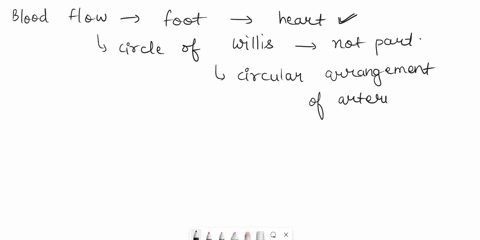 Blood flow → foot → heart ✓
↳ circle of willis → not part.
↳ circular arrangement
of arteri